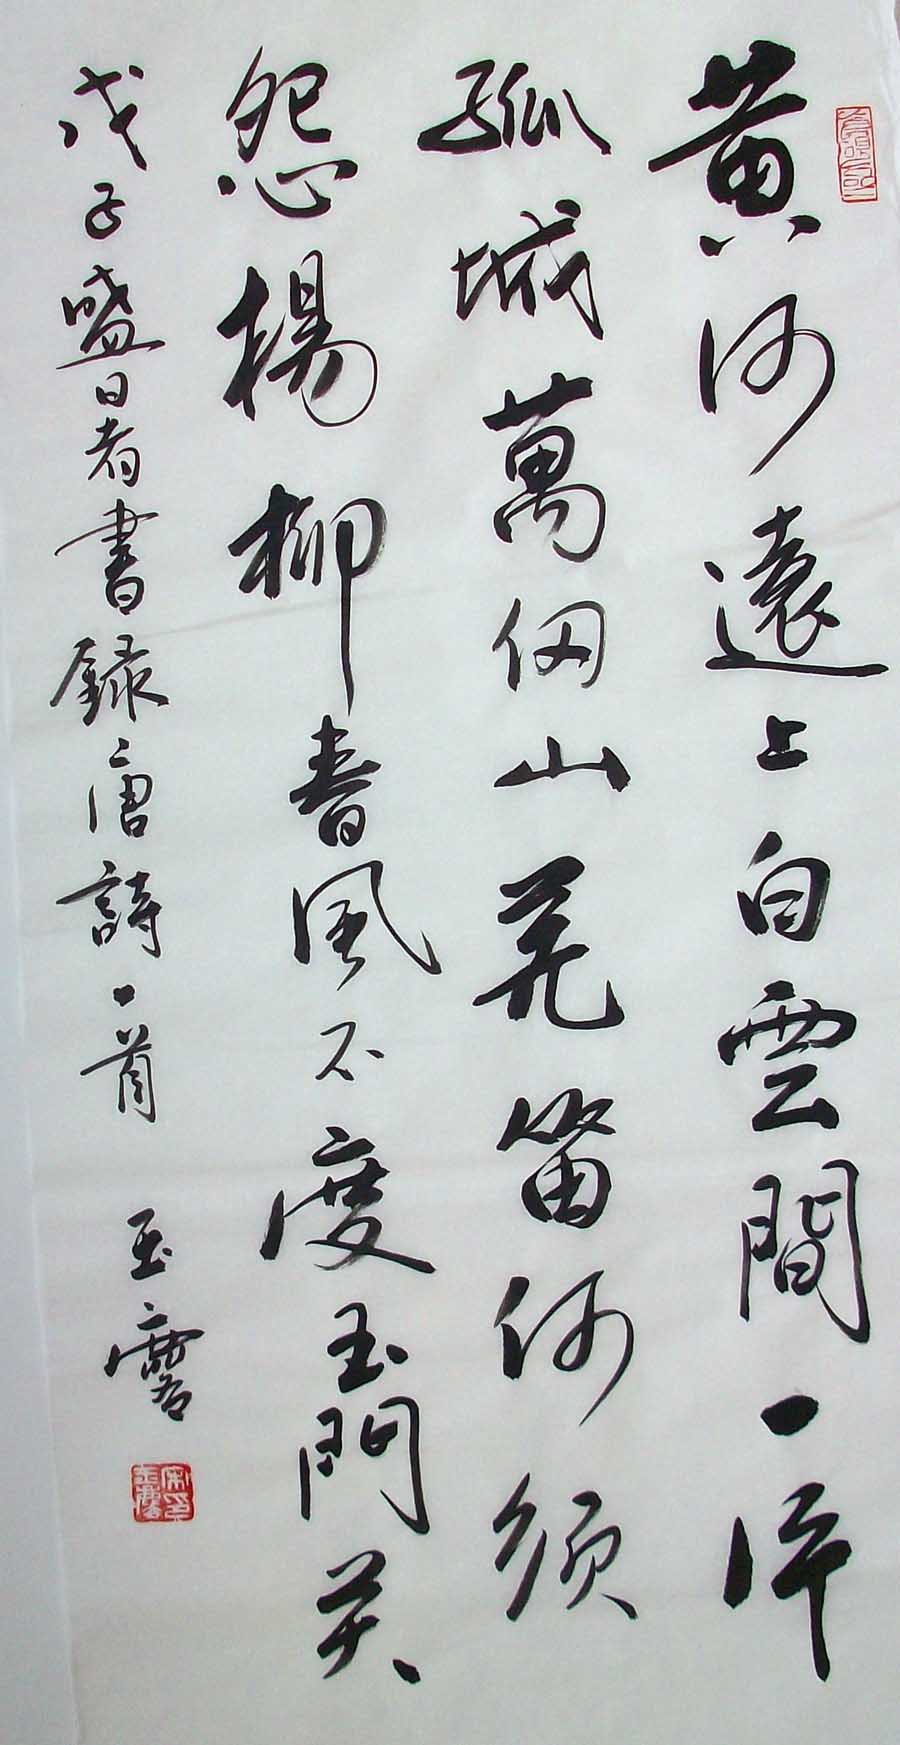 黄河遠上白雲間一片
孤城萬仞山羌笛何須
怨楊柳春風不度玉門关
戊子盛日者書録唐詩一首
玉麐